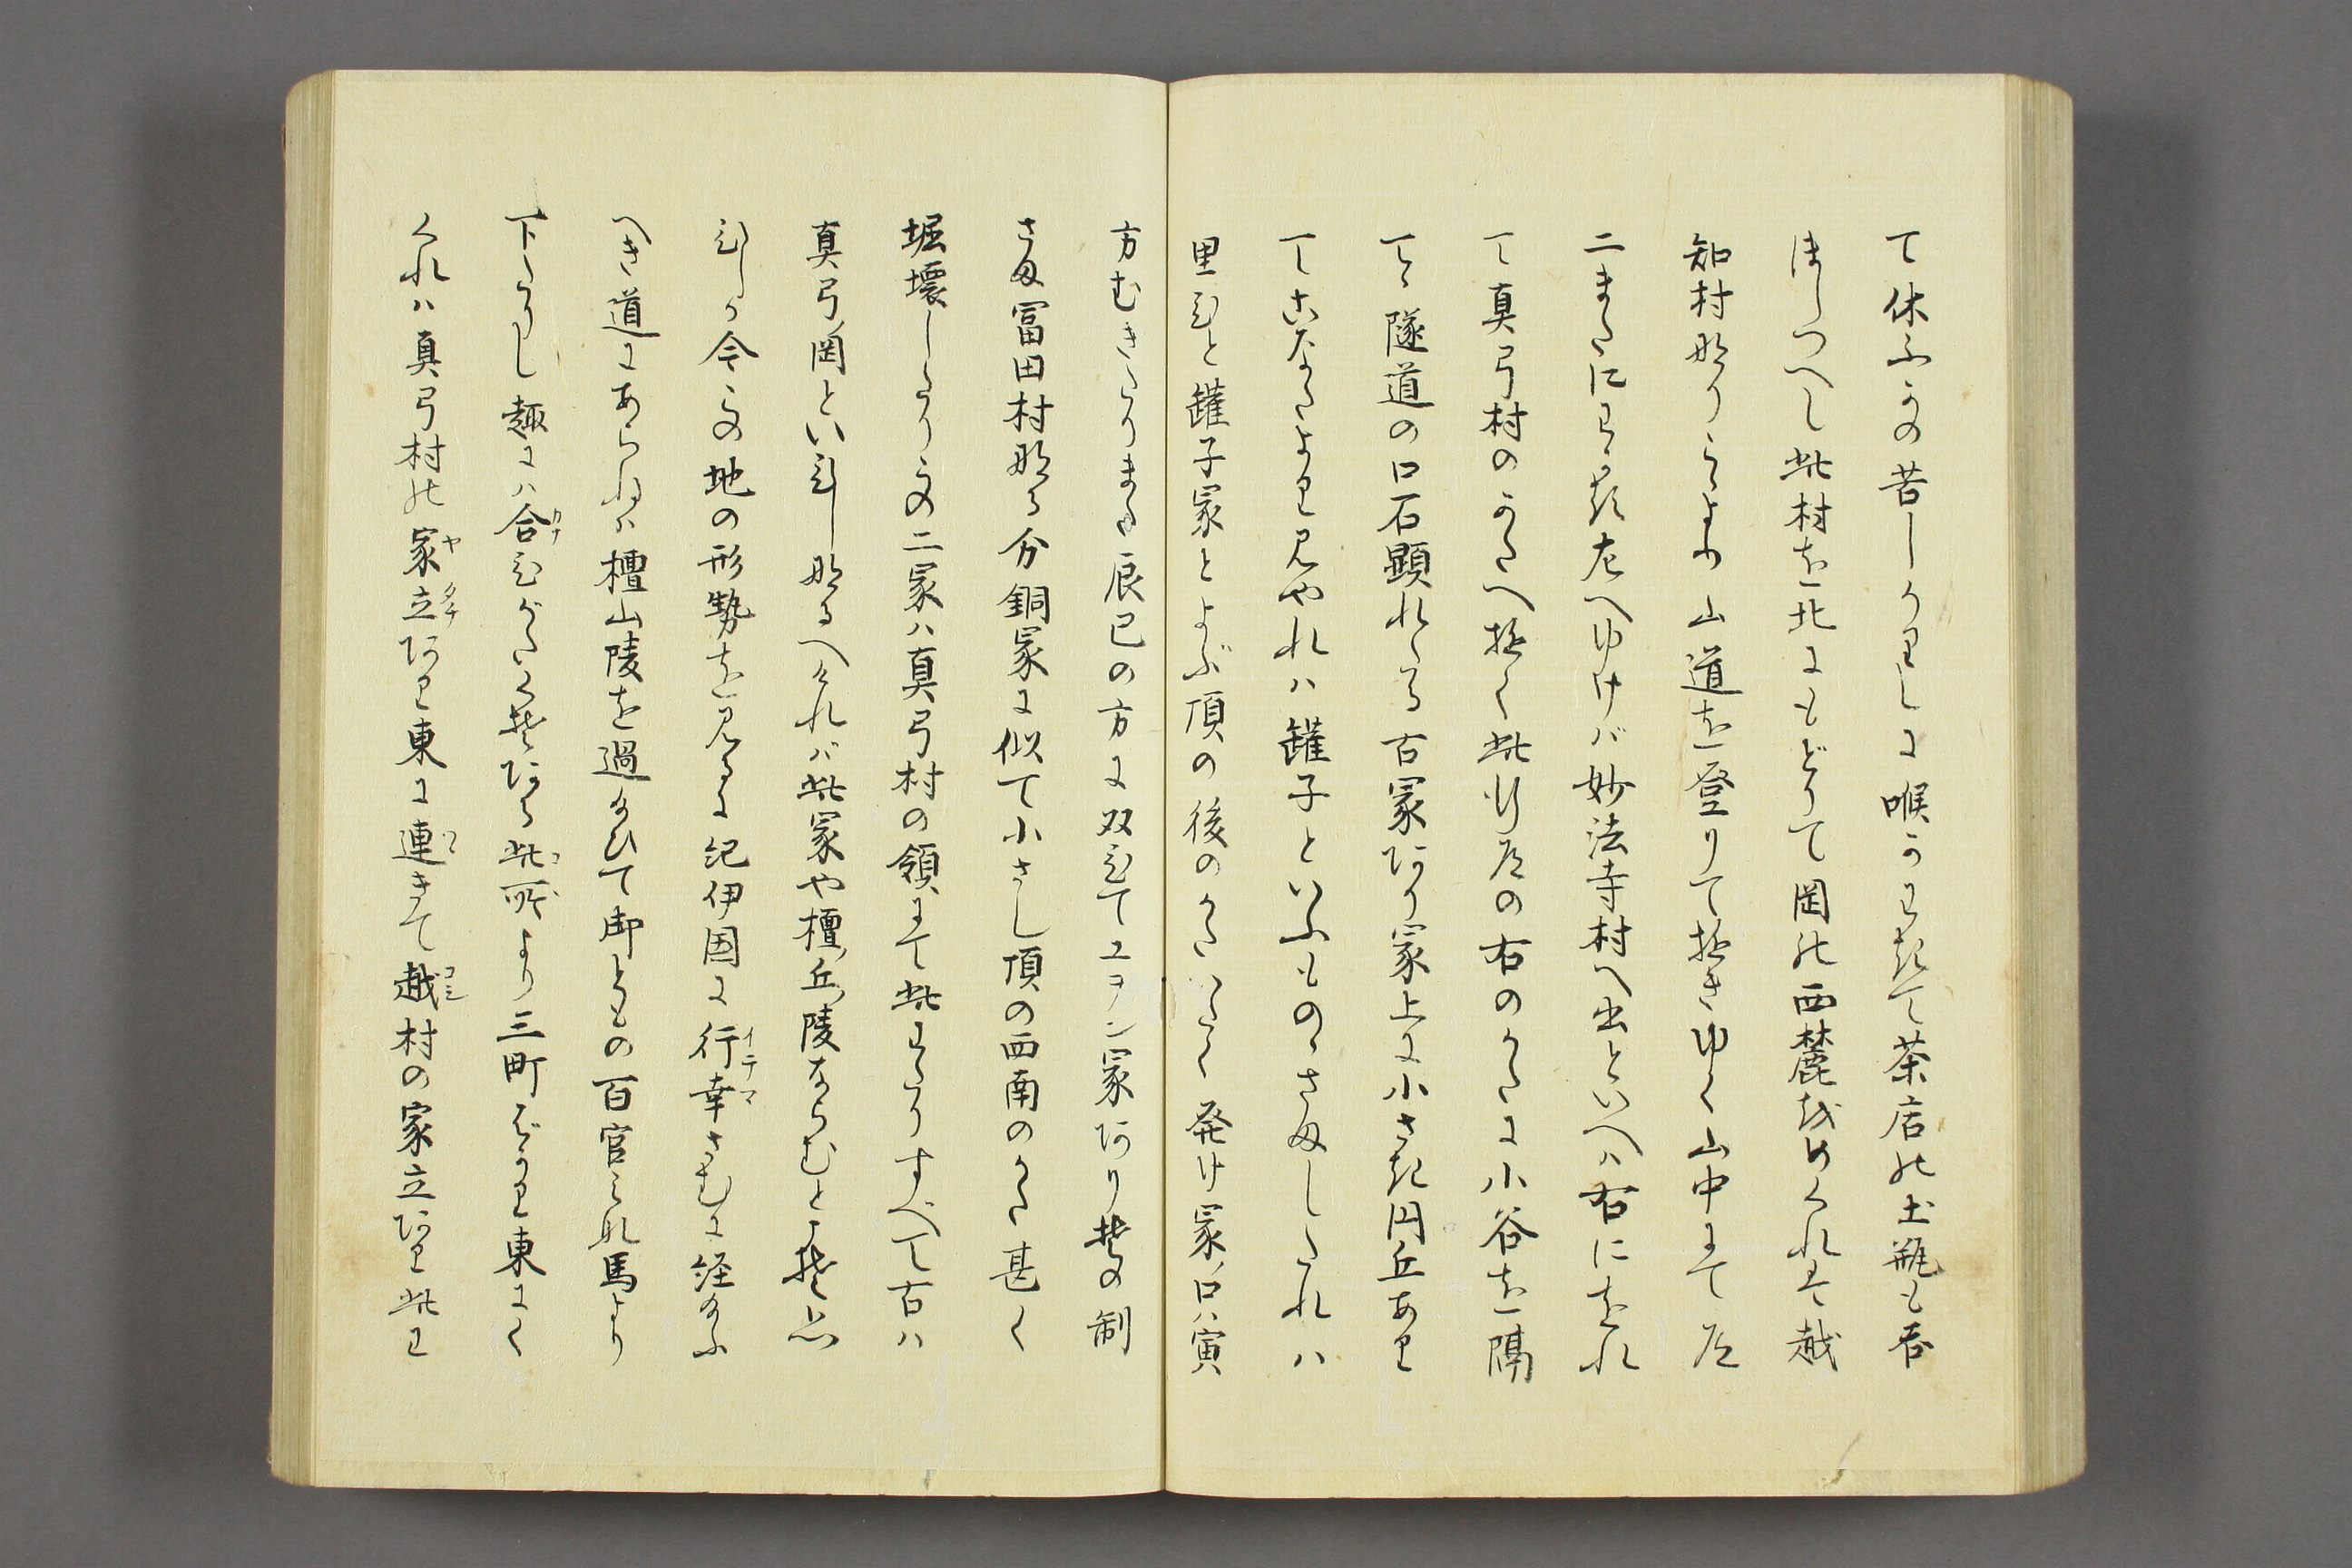 て休ふその苦しかりしに喉かわきて茶店の土瓶も呑
ほしつへし此村を北にもどりて岡の西麓をめくれは越
知村なりこゝより山道を登りて極きゆく山中にて左
二またにわき左へゆけバ妙法寺村へ出といへハ右にをれ
て真弓村のかたへ極く此行左の右のかたに小谷を隔
てゝ隧道の口石顕れたる古冢あり冢上に小さき円丘あり
てこなたより見やれハ鑵子といふものゝさましたれハ
里ひと鑵子冢とよぶ頂の後のかたいたく発け冢口ハ寅
方むきたりまた辰巳の方に双ひてヱヲン冢あり其の制
さま冨田村なる分銅冢に似て小さし頂の西南のかた甚く
堀壊したりこの二冢ハ真弓村の領にて此わたりすべて古ハ
真弓岡といひしなるへけれバ此冢や檀丘陵ならむとそ思
ひしか今この地の形勢を見るに紀伊国に行幸さむに経給ふ
へき道にあらねハ檀山陵を過給ひて御ともの百官これ馬より
下たりし趣にハ合ひがたくそある此所より三町ばかり東にく
くれハ真弓村の家立あり東に連きて越村の家立あり此わ